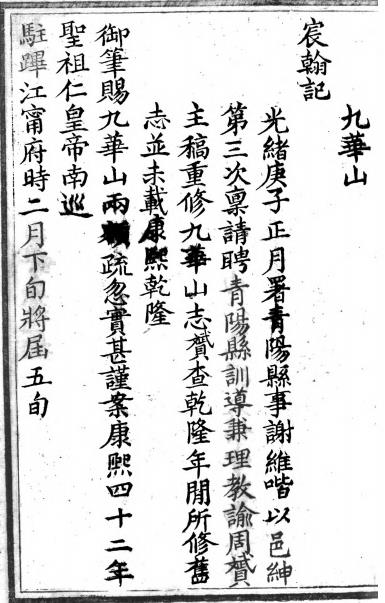 九華山
宸翰記
光緒庚子正月署青陽縣事謝維喈以邑紳
第三次禀請聘青陽縣訓導兼理教諭周贇
主稿重修九華山志贇查乾隆年間所修舊
志並未載康熙乾隆
御筆賜九華山兩額疏忽實甚謹案康熙四十二年
聖祖仁皇帝南巡
駐蹕江甯府時二月下旬將屆五旬